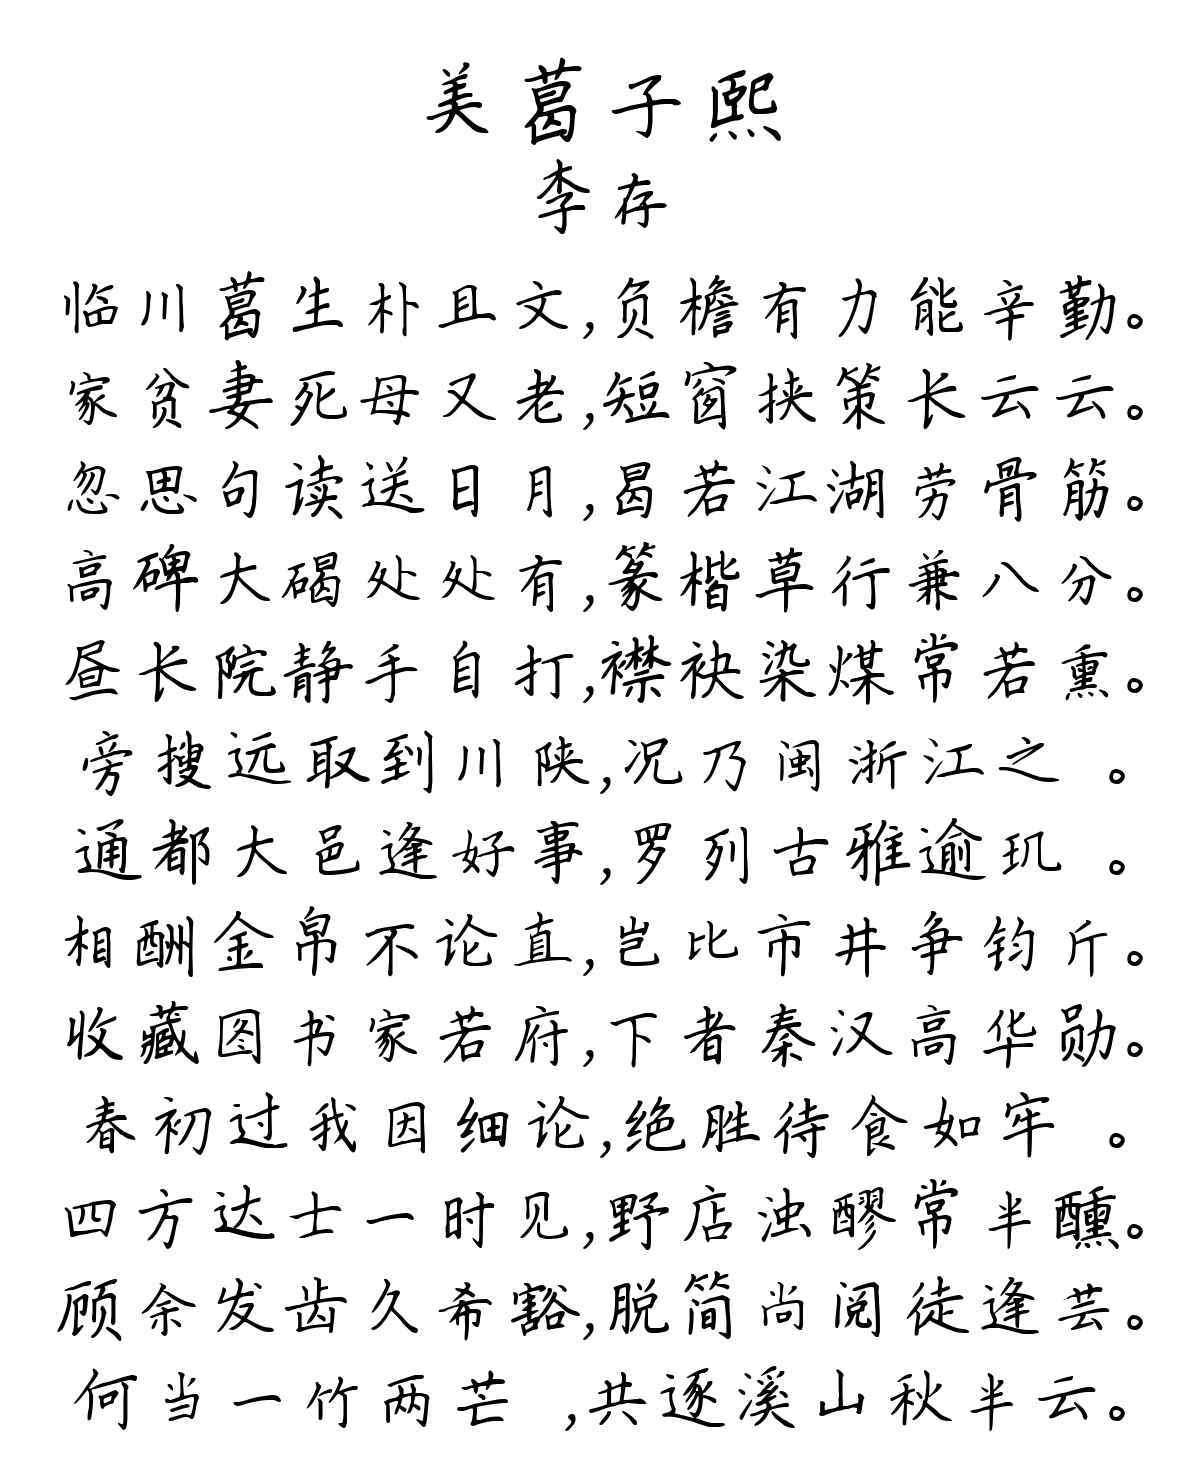 美葛子熙
李存
临川葛生朴且文,负檐有力能辛勤。
家贫妻死母又老,短窗挟策长云云。
忽思句读送日月,曷若江湖劳骨筋。
高碑大碣处处有,篆楷草行兼八分。
昼长院静手自打,襟袂染煤常若熏。
旁搜远取到川陕,况乃闽浙江之 。
通都大邑逢好事,罗列古雅逾玑 。
相酬金帛不论直,岂比市井争钧斤。
收藏图书家若府,下者秦汉高华勋。
春初过我因细论,绝胜待食如牢 。
四方达士一时见,野店浊醪常半醺。
顾余发齿久希豁,脱简尚阅徒逢芸。
何当一竹两芒 ,共逐溪山秋半云。